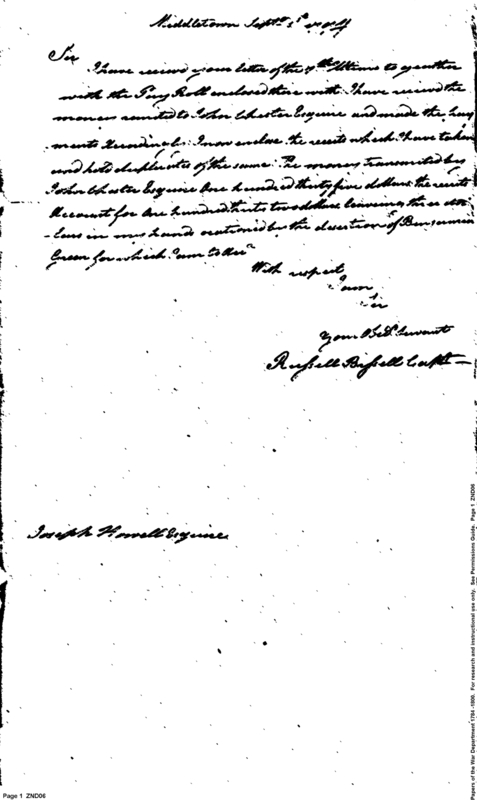 Middletown Septr. 3d 1794
Sir
I have receivd your letter of the 7th Ultimo together
with the Pay Roll enclosed there with. I have receivd the
money remitted to John Chester Esquire and made the pay
ments Accordingly. I now enclose the receits which I have taken
and hold duplicates of the same. The money transmited by
John Chester Esquire One hundred thirty five dollars the receits
Account for One hundred thirty two dollars leaveing three dol
-lars in my hands ocationed by the desertion of Benjamin
Green for which I am
With respect
I am
Sir
Your Obdt Servant
Russell Bissell Capt
Joseph Howell Esquire
Page 1 ZND06
Papers of the War Department 1784-1800. For research and instructional use only. See Permissions Guide. Page 1 ZND06